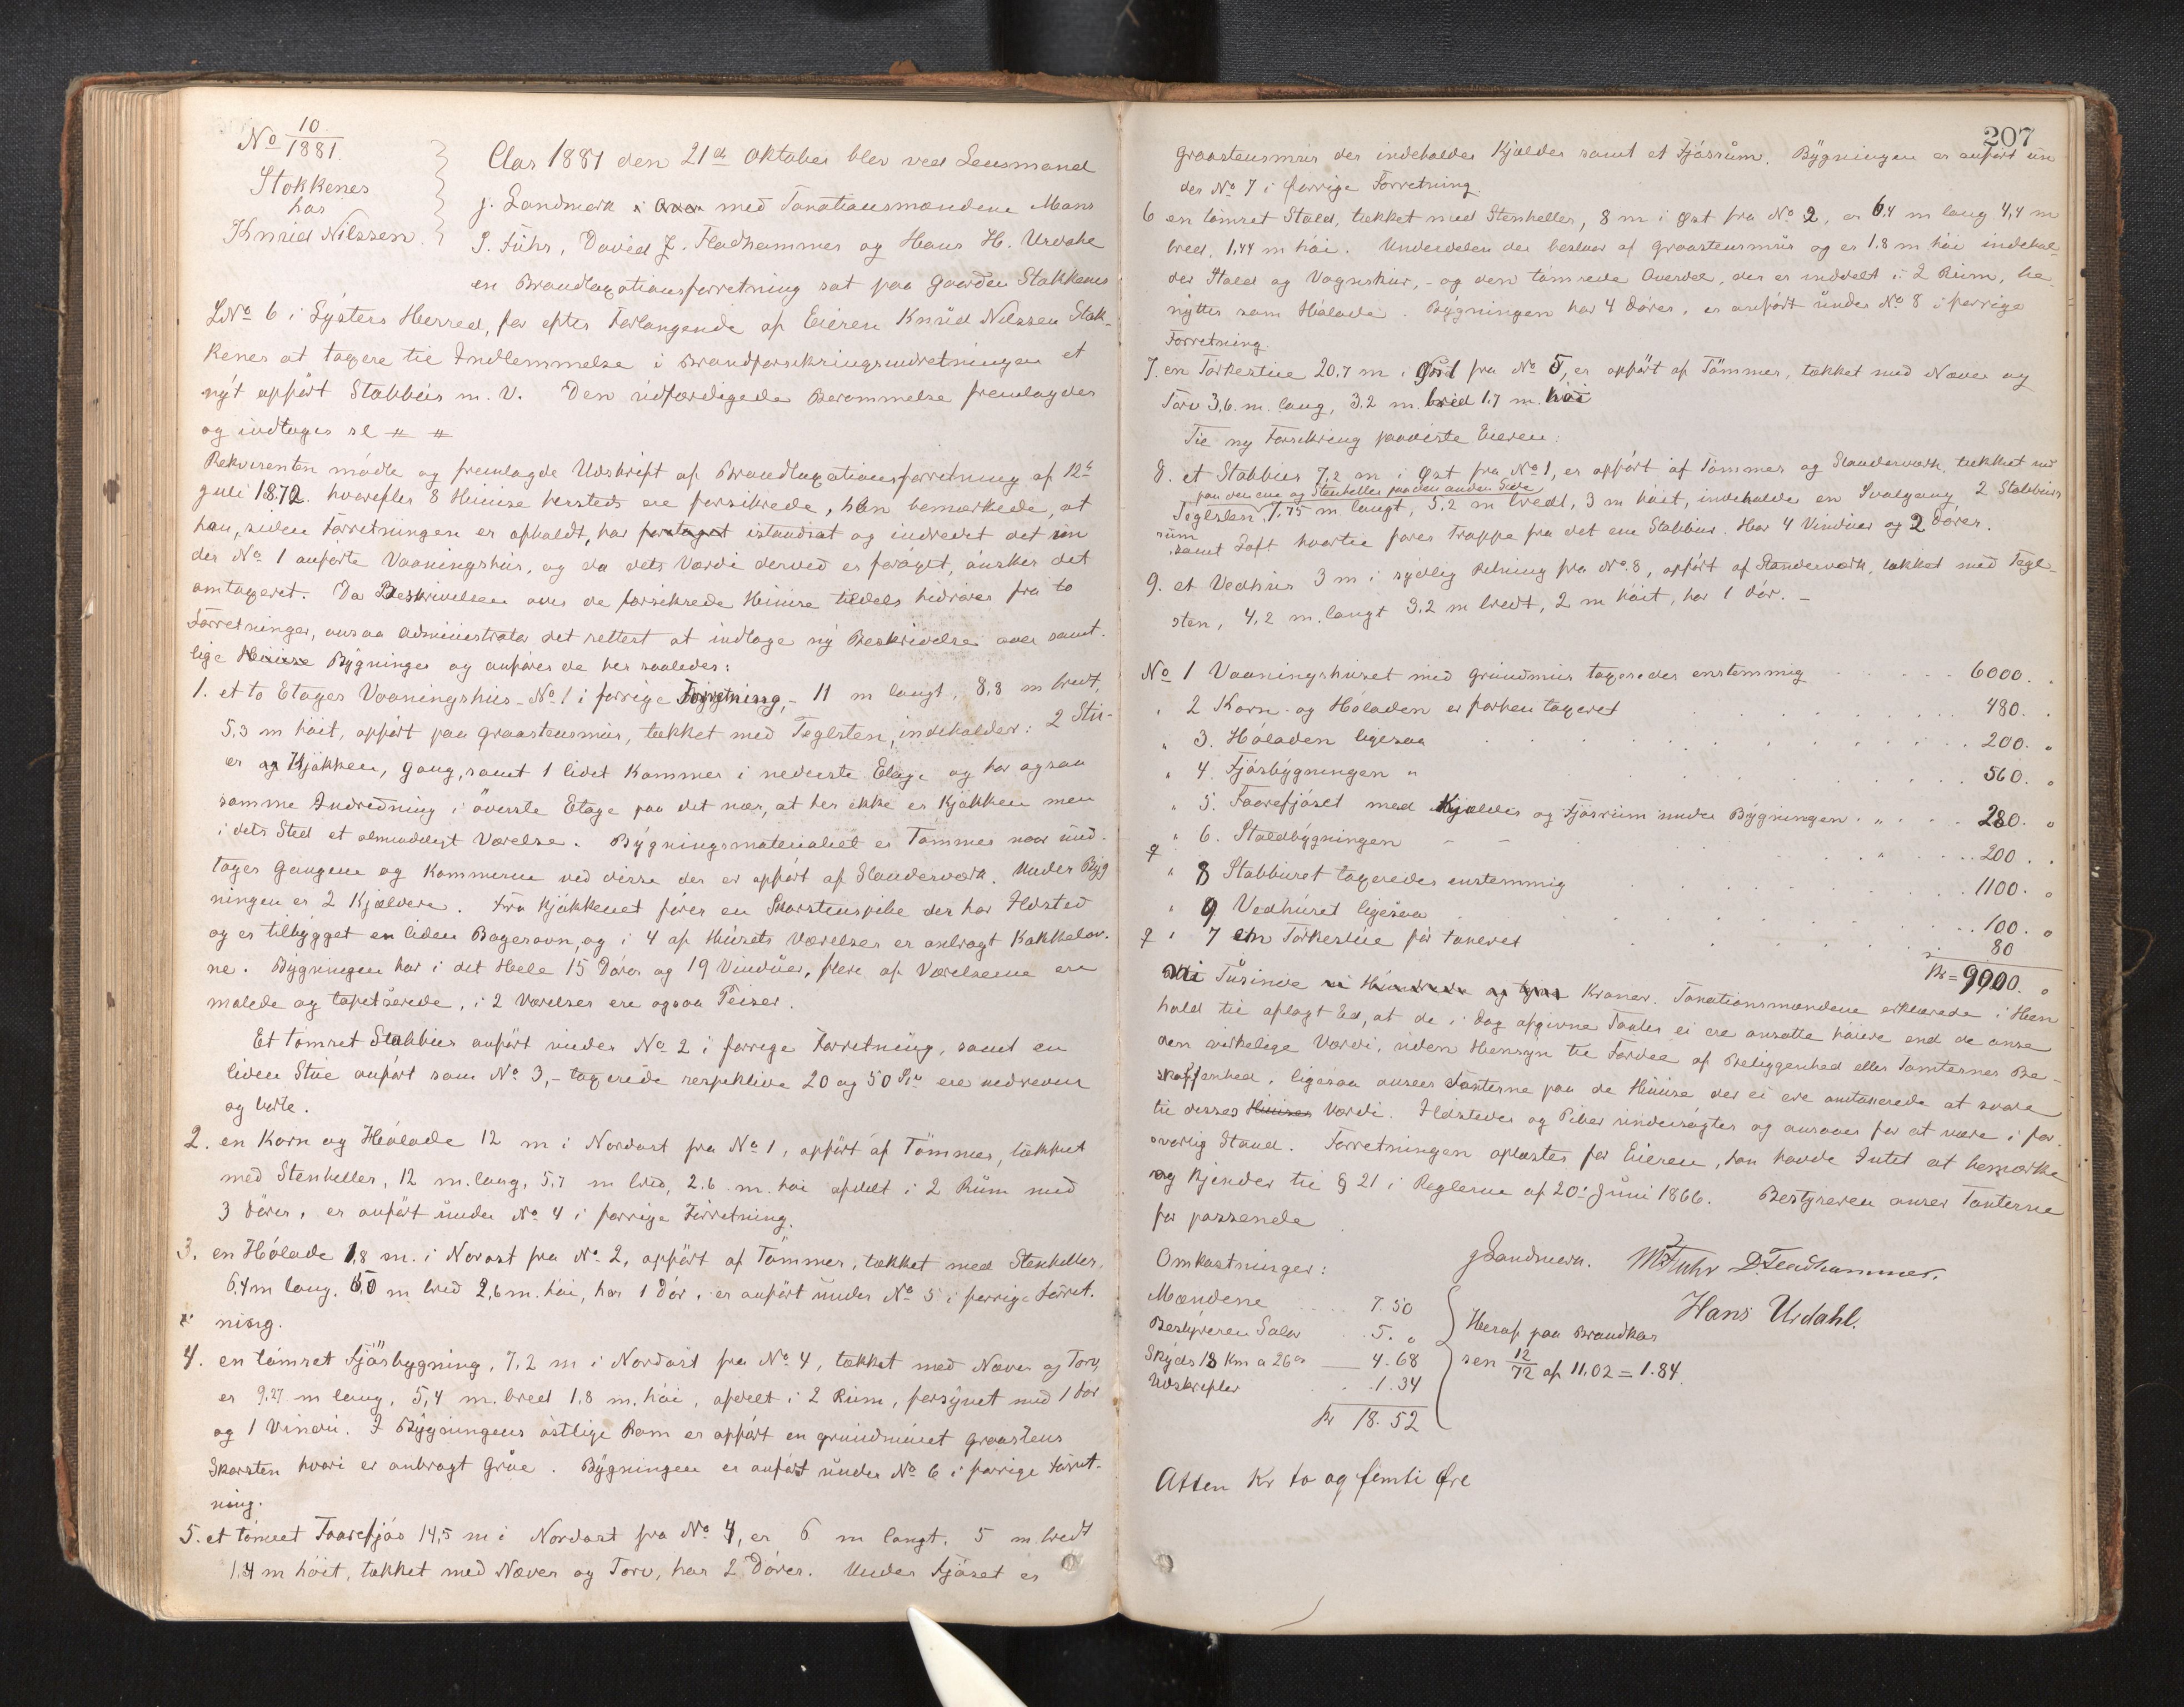 No 10/1881.
Stokkenes
hos
Knud Nilssen.
Aar 1881 den 21de Oktober blev ved Lensmand
J. Landmark med Taxationsmændene Mons
P. Fuhr, David J. Fladhammer og Hans H. Urdahl
en Brandtaxationsforretning sat paa Gaarden Stokkenes
LNo 6 i Lysters Herred, for efter Forlangende af Eieren Knud Nilssen Stok-
kenes at taxere til Indlemmelse i Brandforsikringsindretningen et
nyt opført Stabbur m. V. Den udfærdigede Berammelse fremlagdes
og indtages sl # #
Rekvirenten mødte og fremlagde Udskrift af Brandtaxationsforretning af 12te
Juli 1872. hvorefter 8 Huuse hersteds ere forsikrede, han bemærkede, at
han, siden Forretningen er afholdt, har foretaget istandsat og indredet det un
der No 1 anførte Vaaningshus, og da dets Værdi derved er forøget, ønskes det
omtaxeret. Da Beskrivelsen over de forsikrede Huuse tildels hidrører fra to
Forretninger, ansaa Administrator det rettest at indtage ny Beskrivelse over samt-
lige Huuse Bygninger og anføres de her saaledes:
1. et to Etages Vaaningshus No 1 i forrige Forretning, - 11 m langt, 8,8 m bredt,
5,3 m høit, opført paa Graastensmur, tækket med Teglsten, indeholder: 2 Stu-
er og Kjøkken, Gang, samt 1 lidet Kammer i nederste Etage og har ogsaa
samme Indredning i øverste Etage paa det nær, at her ikke er Kjøkken men
i dets Sted et almindeligt Værelse. Bygningsmaterialiet er Tømmer naar und-
tages Gangene og Kammerne ved disse der er opført af Standerværk. Under Byg
ningen er 2 Kjældere. Fra Kjøkkenet fører en Skorstenspibe der har Ildsted
og er tilbygget en liden Bagerovn, og i 4 af Husets Værelser er anbragt Kakkelov-
ne. Bygningen har i det Hele 15 Døre og 19 Vinduer, flere af Værelserne ere
malede og tapetserede, i 2 Værelser ere ogsaa Peiser.
Et tømret Stabbur anført under No 2 i forrige Forretning, samt en
liden Stue anført som No 3, - taxerede respektive 20 og 50 Spd ere nedrevne
og borte.
2. en Korn og Høladе 12 m i Nordost fra No 1, opført af Tømmer, tækket
med Stenheller, 12 m. lang, 5,7 m bred, 2.6 m. høi afdelt i 2 Rum med
3 Døre, er anført under No 4 i forrige Forretning.
3. en Hølade 1,8 m. i Norost fra No 2, opført af Tømmer, tækket med Stenheller,
6,4 m lang, 6,0 m bred 2,6 m. høi, har 1 Dør, er anført under No 5 i forrige Forret-
ning.
4. en tømret Fjøsbygning, 7,2 m i Nordost fra No 4, tækket med Næver og Torv,
er 9,27 m lang, 5,4 m. bred 1,8 m. høi, afdelt i 2 Rum, forsynet med 1 Dør
og 1 Vindu. I Bygningens østlige Rom er opført en grundmuret Graastens
Skorsten hvori er anbragt Grue. Bygningen er anført under No 6 i forrige Forret-
ning.
5. et tømret Faarefjøs 14,5 m i Nordost fra No 4, er 6 m langt, 5 m bredt
1,4 m høit, tækket med Næver og Torv, har 2 Døre. Under Fjøset er
207
Graastensmur der indeholder Kjælder samt et Fjøsrum. Bygningen er anført un
der No 7 i forrige Forretning.
6 en tømret Stald, tækket med Stenheller, 8 m i Øst fra No 2, er 6,4 m lang 4,4 m
bred, 1,44 m høi. Underdelen der bestaar af Graastensmur og er 1.8 m høi indehol-
der Stald og Vognskur, - og den tømrede Overdel, der er inddelt i 2 Rum, be
nyttes som Hølade. Bygningen har 4 Døre, er anført under No 8 i forrige
Forretning.
7. en Tørkestue 20.7 m i Øst fra No 5, er opført af Tømmer, tækket med Næver og
Torv 3,6 m. lang, 3,2 m. bred 1.7 m. høi
Til ny Forsikring paaviste Eieren:
8. et Stabbur 7,2 m i Øst fra No 1, er opført af Tømmer og Standerværk, tækket med
paa den ene og Stenheller paa den anden Side
Teglsten, 7,75 m langt, 5,2 m bredt, 3 m høit, indeholder en Svalgang 2 Stabburs
rum
samt Loft hvortil fører Trappe fra det ene Stabbur. Har 4 Vinduer og 2 Døre.
9. et Vedhus 3 m i sydlig Retning fra No 8, opført af Standerværk, tækket med Tegl-
sten, 4,2 m. langt 3.2 m bredt, 2 m høit, har 1 Dør. -
No 1 Vaaningshuset med Grundmur taxeredes enstemmig 6000.
" 2 Korn- og Høladen er forhen taxeret 480.
" 3. Høladen ligesaa 200.
" 4. Fjøsbygningen " 560.
" 5. Faarefjøset med Kjælder og Fjøsrum under Bygningen " 280.
" 6. Staldbygningen " 200.
" 8 Stabburet taxeredes enstemmig 1100.
" 9 Vedhuset ligesaa 100.
" 7 en Tørkestue før taxeret 80
Kr = 9000.
ni Tusinde Kroner. Taxationsmændene erklærede i Hen
hold til aflagt Ed, at de i Dag afgivne Taxter ei ere ansatte høiere end de anse
den virkelige Værdi, uden Hensyn til Fordel af Beliggenhed eller Tomternes Be-
skaffenhed, ligesaa ansees Taxterne paa de Huuse der ei ere omtaxerede at svare
til disses Huuses Værdi. Ildsteder og Piber undersøgtes og ansaaes for at være i for-
svarlig Stand. Forretningen oplæstes for Eieren, han havde Intet at bemærke
og Kjender til § 21 i Reglerne af 20de Juni 1866. Bestyreren anser Taxterne
for passende
J Landmark. M P Fuhr D. Fladhammer.
Hans Urdahl.
Omkostninger:
Mændene 7.50
Bestyreren Salær 5. "
Skyds 18 Km a 26 øre 4.68
Udskrifter 1.34
Kr 18.52
Heraf paa Brandkas
sen 12/72 af 11.02 = 1.84.
Atten Kr to og femti Øre